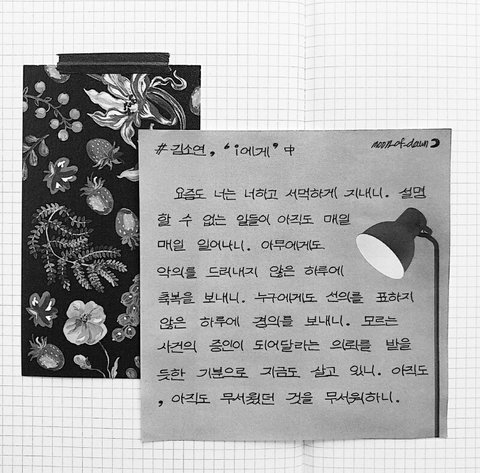 #김소연, 'i에게' 中
noon_of_dawn
요즘도 너는 너하고 서먹하게 지내니. 설명
할 수 없는 일들이 아직도 매일
매일 일어나니. 아무에게도
악의를 드러내지 않은 하루에
축복을 보내니. 누구에게도 선의를 표하지
않은 하루에 경의를 보내니. 모르는
사건의 증인이 되어달라는 의뢰를 받을
듯한 기분으로 지금도 살고 있니. 아직도
, 아직도 무서웠던 것을 무서워하니.